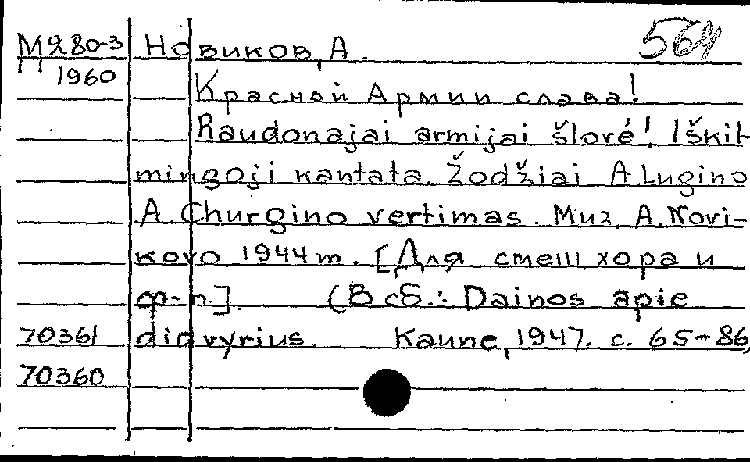 М280-3 Новиков, А. 564
1960
Красной Армии слава!
Raudonajai armijai šlovė! Iškil-
mingoji kantata. Žodžiai A Lugino
A. Churgino vertimas. Muz. A. Novi-
kovo 1944 m. [Для смеш хора и
ф-п.]. (В сб.: Dainos apie
70361 didvyrius. Kaune, 1947. с. 65-86,
70360